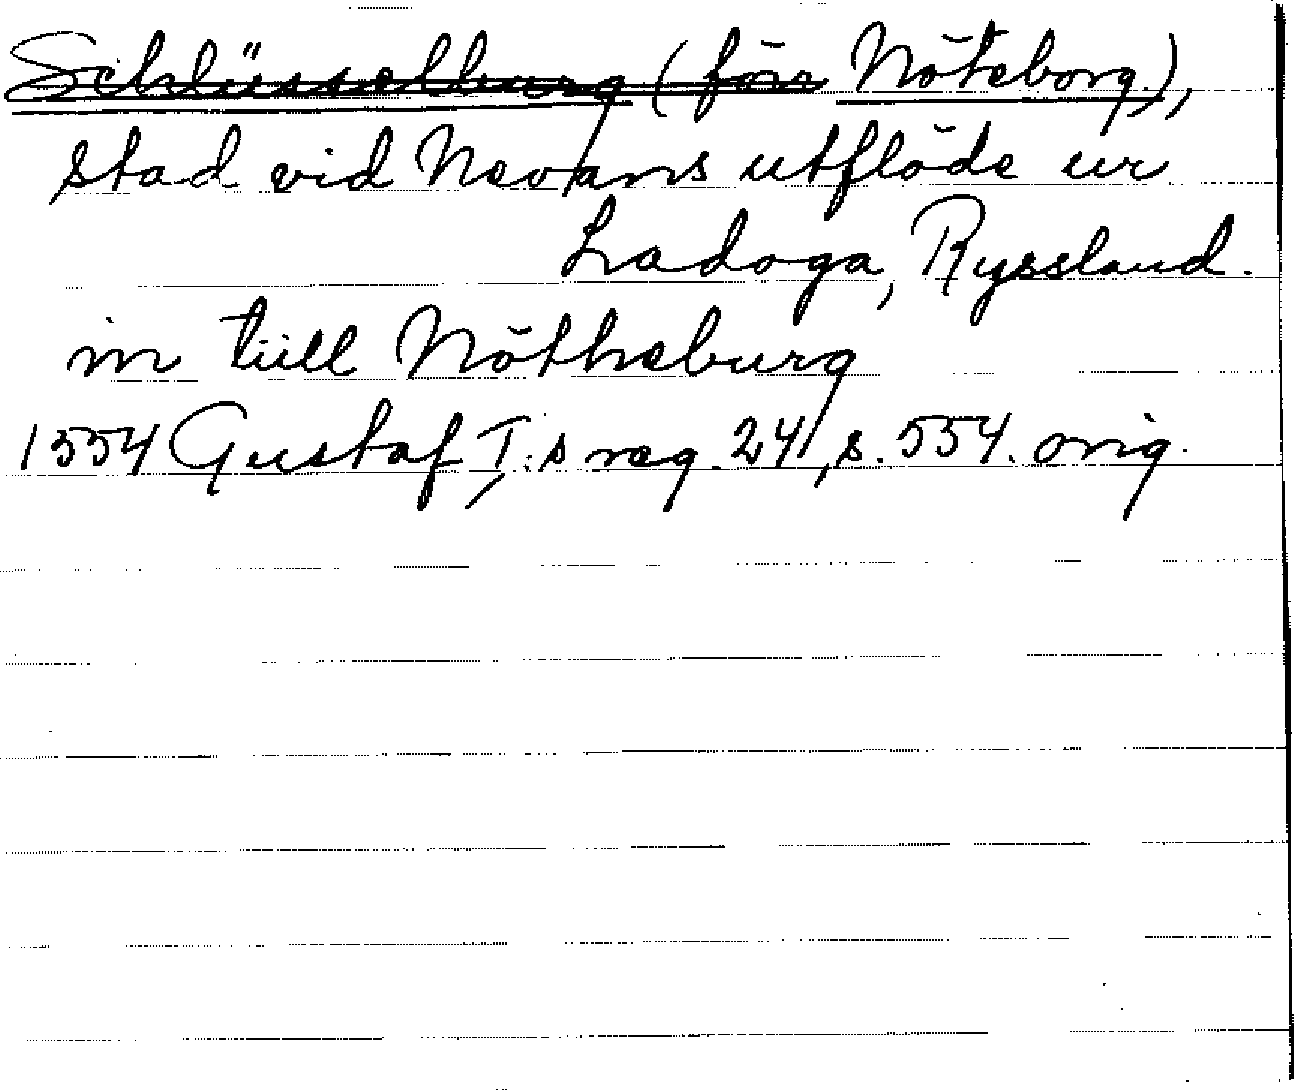 Schlüsselburg (förr Nöteborg),
stad vid Nevans utflöde ur
Ladoga, Ryssland.
in tüll Nötheburg
1554 Gustaf I:s reg. 24, s. 554. orig.